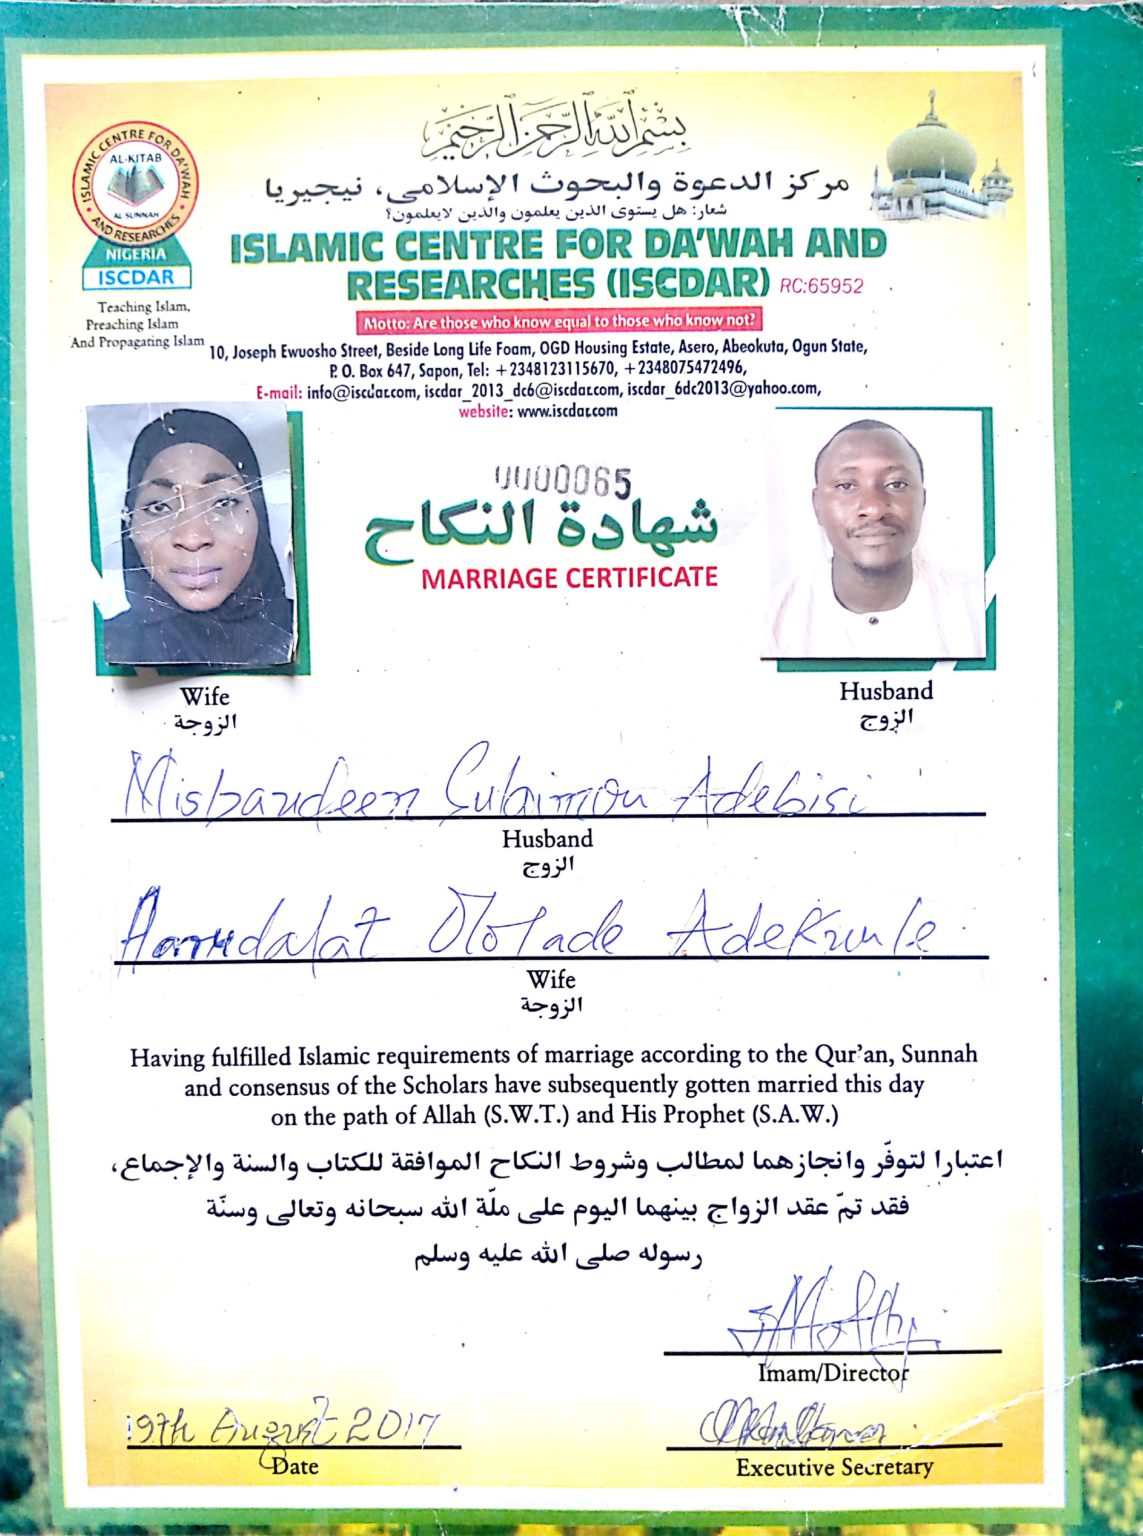 بسم الله الرحمن الرحيم
مركز الدعوة والبحوث الإسلامي، نيجيريا
شعار: هل يستوى الذين يعلمون والذين لايعلمون؟
ISLAMIC CENTRE FOR DA'WAH AND
RESEARCHES (ISCDAR) RC:65952
Motto: Are those who know equal to those who know not?
ISLAMIC CENTRE FOR DA'WAH
AND RESEARCHES
AL-KITAB
AL SUNNAH
NIGERIA
ISCDAR
Teaching Islam,
Preaching Islam
And Propagating Islam
10, Joseph Ewuosho Street, Beside Long Life Foam, OGD Housing Estate, Asero, Abeokuta, Ogun State,
P. O. Box 647, Sapon, Tel: +2348123115670, +2348075472496,
E-mail: info@iscdar.com, iscdar_2013_dc6@iscdar.com, iscdar_6dc2013@yahoo.com,
website: www.iscdar.com
0000065
شهادة النكاح
MARRIAGE CERTIFICATE
Wife
الزوجة
Husband
الزوج
Misbaudeen Sulaimon Adebisi
Husband
الزوج
Olotade Adekunle
Wife
الزوجة
Having fulfilled Islamic requirements of marriage according to the Qur'an, Sunnah
and consensus of the Scholars have subsequently gotten married this day
on the path of Allah (S.W.T.) and His Prophet (S.A.W.)
اعتبارا لتوفّر وانجازهما لمطالب وشروط النكاح الموافقة للكتاب والسنة والإجماع،
فقد تمّ عقد الزواج بينهما اليوم على ملّة الله سبحانه وتعالى وسنّة
رسوله صلى الله عليه وسلم
Imam/Director
19th August 2017
Date
Executive Secretary